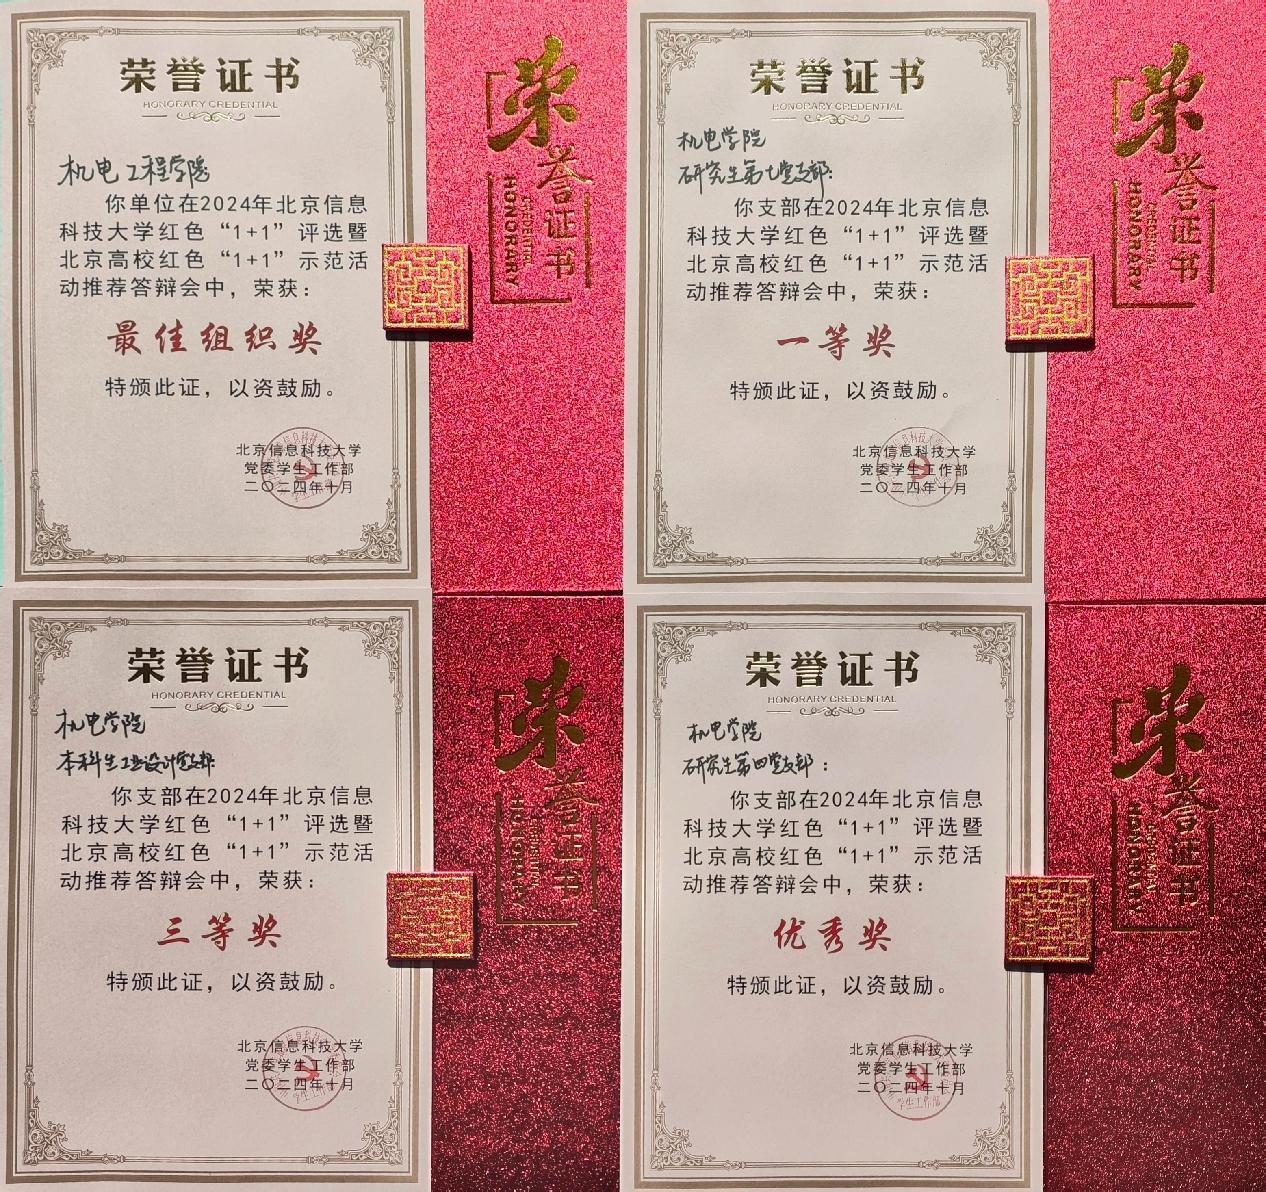 荣誉证书
HONORARY CREDENTIAL
机电工程学院
你单位在2024年北京信息
科技大学红色“1+1”评选暨
北京高校红色“1+1”示范活
动推荐答辩会中，荣获：
最佳组织奖
特颁此证，以资鼓励。
北京信息科技大学
党委学生工作部
二〇二四年十月
荣誉证书
HONORARY
CREDENTIAL
荣誉证书
HONORARY CREDENTIAL
机电学院
研究生第七党支部：
你支部在2024年北京信息
科技大学红色“1+1”评选暨
北京高校红色“1+1”示范活
动推荐答辩会中，荣获：
一等奖
特颁此证，以资鼓励。
北京信息科技大学
党委学生工作部
二〇二四年十月
荣誉证书
HONORARY
CREDENTIAL
荣誉证书
HONORARY CREDENTIAL
机电学院
本科生工业设计党支部：
你支部在2024年北京信息
科技大学红色“1+1”评选暨
北京高校红色“1+1”示范活
动推荐答辩会中，荣获：
三等奖
特颁此证，以资鼓励。
北京信息科技大学
党委学生工作部
二〇二四年十月
荣誉证书
HONORARY
CREDENTIAL
荣誉证书
HONORARY CREDENTIAL
机电学院
研究生第四党支部：
你支部在2024年北京信息
科技大学红色“1+1”评选暨
北京高校红色“1+1”示范活
动推荐答辩会中，荣获：
优秀奖
特颁此证，以资鼓励。
北京信息科技大学
党委学生工作部
二〇二四年十月
学生工作部
荣誉证书
HONORARY
CREDENTIAL